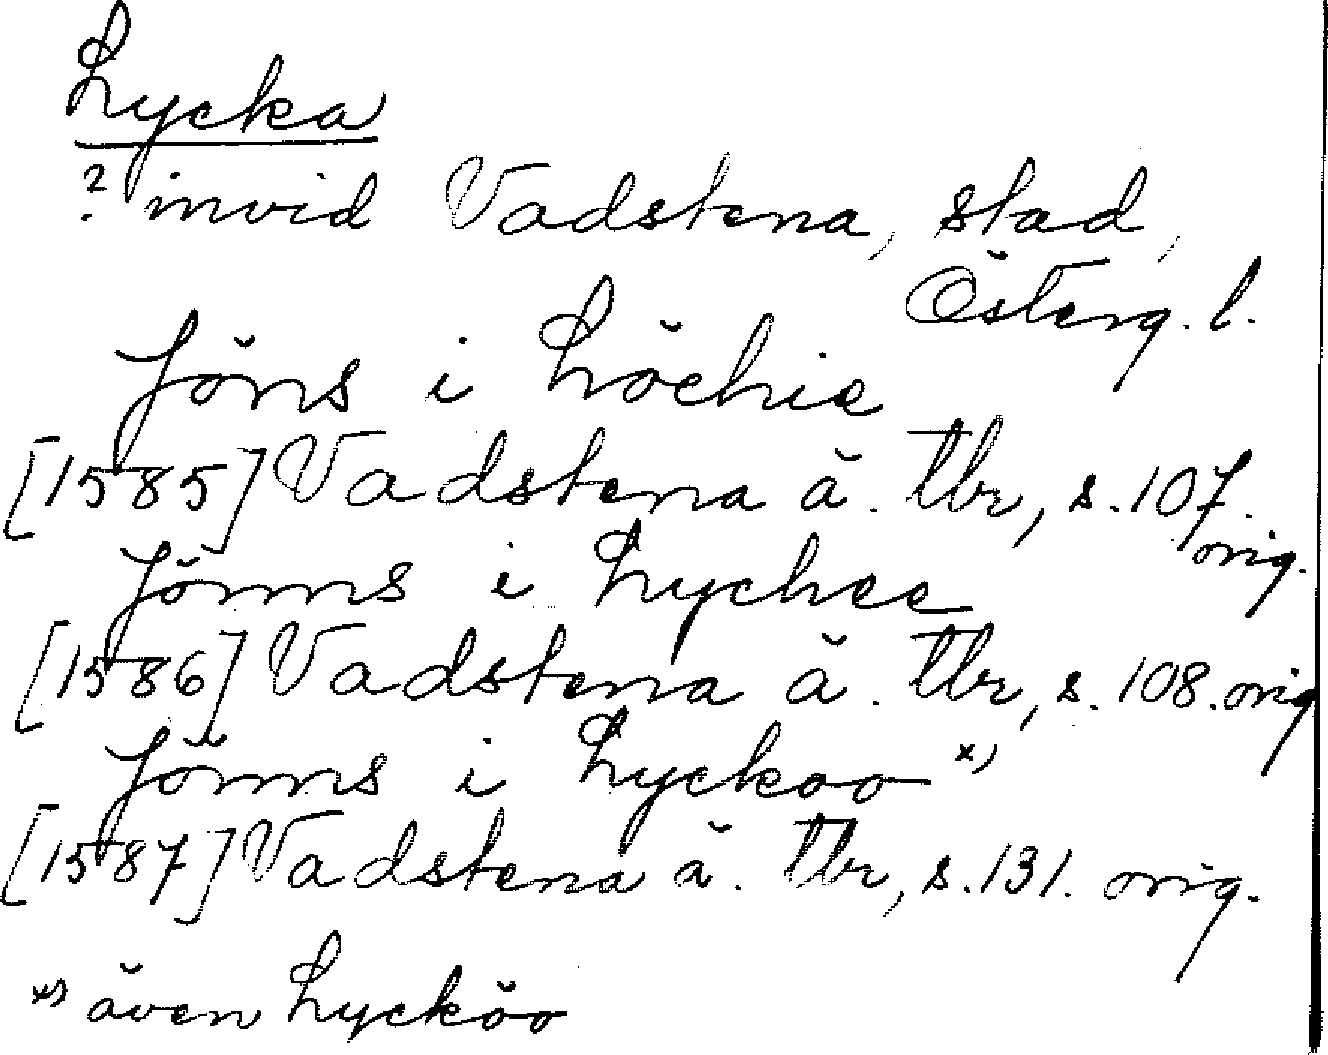 Lycka
? invid Vadstena, stad,
Österg. l.
Jöns i Löchie
[1585] Vadstena ä. tbr, s. 107.
orig.
Jönns i Lychee
[1586] Vadstena ä. tbr, s. 108. orig
Jönns i Lyckoo x)
[1587] Vadstena ä. tbr, s. 131. orig.
x) även Lycköo